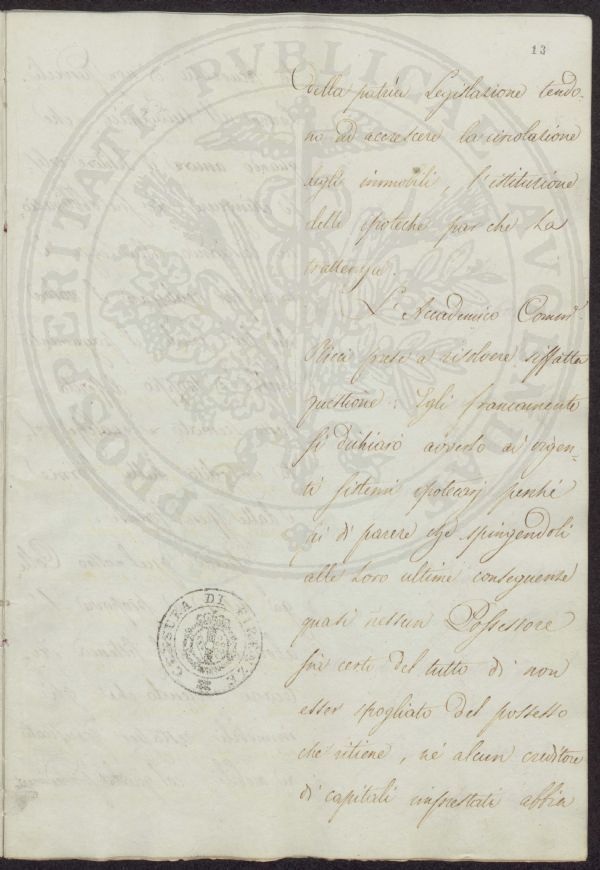 13
della patria Legislazione tendo-
no ad accrescere la circolazione
degli immobili, l'istituzione
delle ipoteche par che La
trattenga.
L'Accademico Comm.
prese a risolvere siffatta
questione: Egli francamente
si dichiarò avverso ai vigen-
ti sistemi ipotecarj perchè
di parere che spingendoli
alle Loro ultime conseguenze
quasi nessun Possessore
sia certo del tutto di non
esser spogliato del possesso
che ritiene, né alcun creditore
di capitali imprestati abbia
CENSURA DI FIRENZE
PROSPERITATI PVBLICAE AVGENDAE